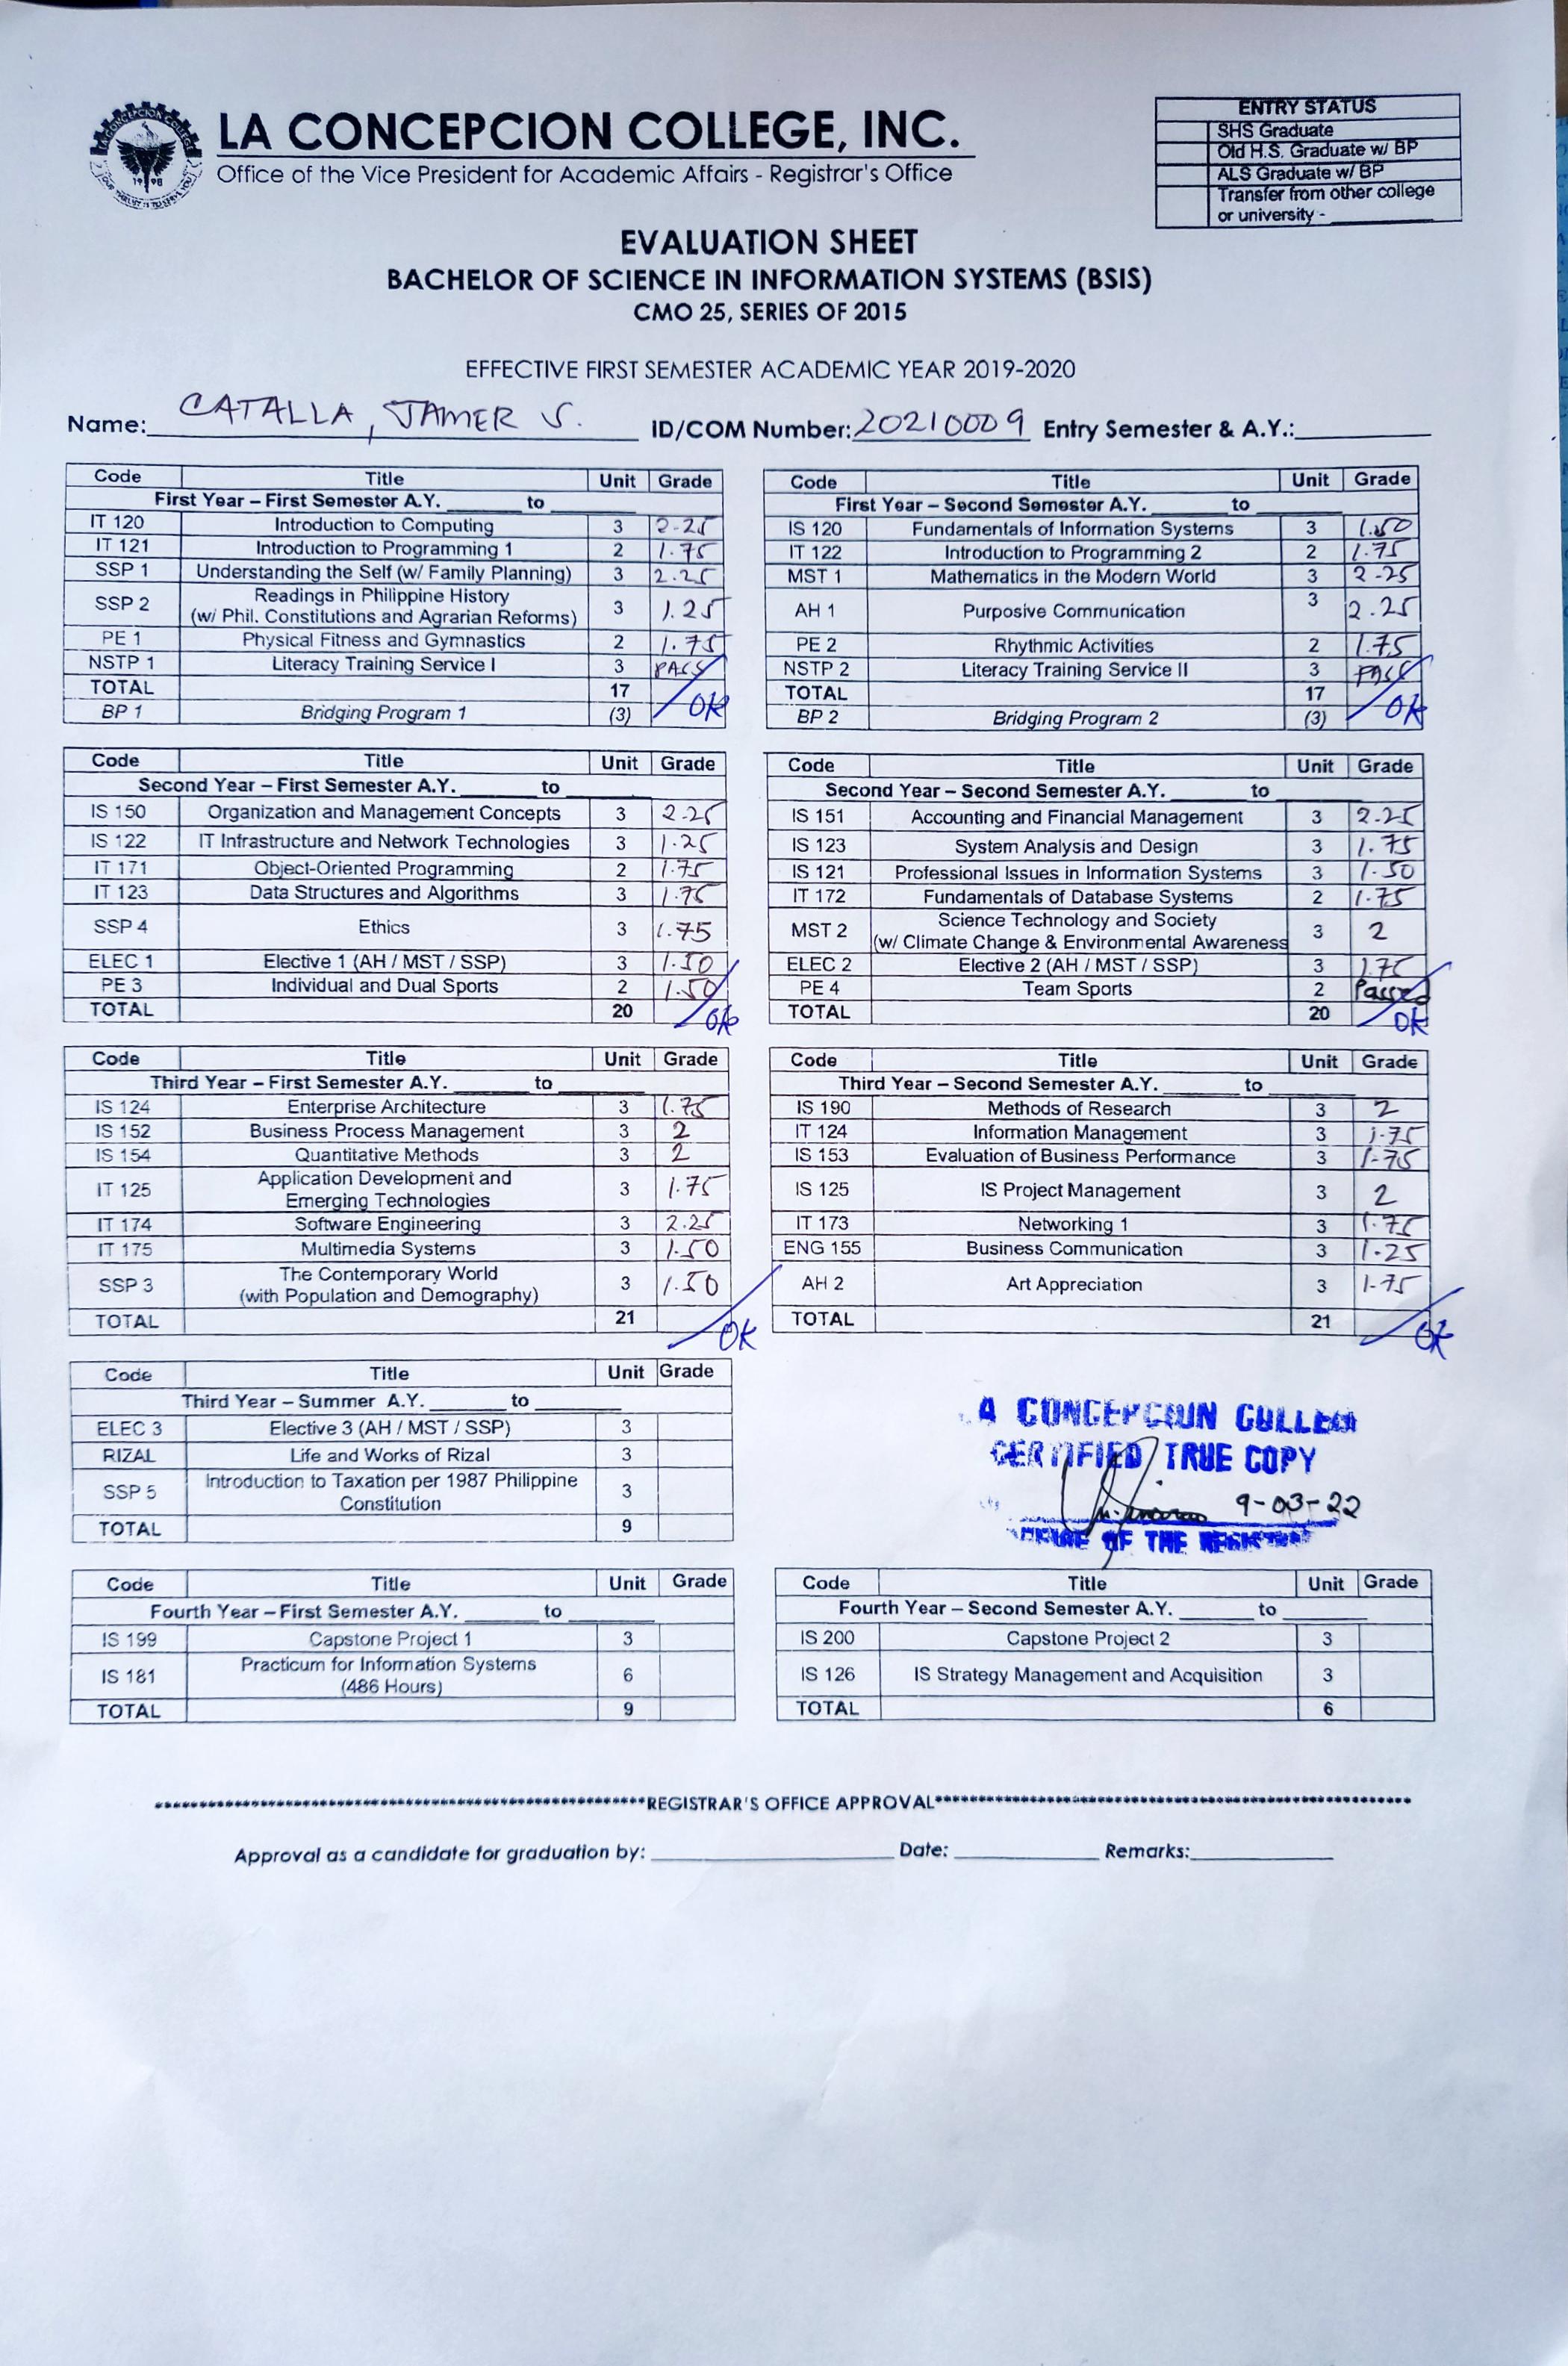 LA CONCEPCION COLLEGE, INC.
Office of the Vice President for Academic Affairs - Registrar's Office
ENTRY STATUS
SHS Graduate
Old H.S. Graduate w/ BP
ALS Graduate w/ BP
Transfer from other college
or university - ____________
EVALUATION SHEET
BACHELOR OF SCIENCE IN INFORMATION SYSTEMS (BSIS)
CMO 25, SERIES OF 2015
EFFECTIVE FIRST SEMESTER ACADEMIC YEAR 2019-2020
Name: CATALLA, JAMER S. ID/COM Number: 20210009 Entry Semester & A.Y.:____________
Code Title Unit Grade
First Year – First Semester A.Y. ________ to ________
IT 120 Introduction to Computing 3 2-25
IT 121 Introduction to Programming 1 2 1.75
SSP 1 Understanding the Self (w/ Family Planning) 3 2.25
SSP 2 Readings in Philippine History
(w/ Phil. Constitutions and Agrarian Reforms) 3 1.25
PE 1 Physical Fitness and Gymnastics 2 1.75
NSTP 1 Literacy Training Service I 3 PASS
TOTAL 17
BP 1 Bridging Program 1 (3) OK
Code Title Unit Grade
First Year – Second Semester A.Y. ________ to ________
IS 120 Fundamentals of Information Systems 3 1.50
IT 122 Introduction to Programming 2 2 1.75
MST 1 Mathematics in the Modern World 3 2-25
AH 1 Purposive Communication 3 2.25
PE 2 Rhythmic Activities 2 1.75
NSTP 2 Literacy Training Service II 3 PASS
TOTAL 17
BP 2 Bridging Program 2 (3) OK
Code Title Unit Grade
Second Year – First Semester A.Y. ________ to ________
IS 150 Organization and Management Concepts 3 2-25
IS 122 IT Infrastructure and Network Technologies 3 1.25
IT 171 Object-Oriented Programming 2 1.75
IT 123 Data Structures and Algorithms 3 1.75
SSP 4 Ethics 3 1.75
ELEC 1 Elective 1 (AH / MST / SSP) 3 1.50
PE 3 Individual and Dual Sports 2 1.50
TOTAL 20 OK
Code Title Unit Grade
Second Year – Second Semester A.Y. ________ to ________
IS 151 Accounting and Financial Management 3 2-25
IS 123 System Analysis and Design 3 1.75
IS 121 Professional Issues in Information Systems 3 1-50
IT 172 Fundamentals of Database Systems 2 1.75
MST 2 Science Technology and Society
(w/ Climate Change & Environmental Awareness 3 2
ELEC 2 Elective 2 (AH / MST / SSP) 3 1.75
PE 4 Team Sports 2 Passed
TOTAL 20 OK
Code Title Unit Grade
Third Year – First Semester A.Y. ________ to ________
IS 124 Enterprise Architecture 3 1.75
IS 152 Business Process Management 3 2
IS 154 Quantitative Methods 3 2
IT 125 Application Development and
Emerging Technologies 3 1.75
IT 174 Software Engineering 3 2.25
IT 175 Multimedia Systems 3 1.50
SSP 3 The Contemporary World
(with Population and Demography) 3 1.50
TOTAL 21 OK
Code Title Unit Grade
Third Year – Second Semester A.Y. ________ to ________
IS 190 Methods of Research 3 2
IT 124 Information Management 3 1.75
IS 153 Evaluation of Business Performance 3 1-75
IS 125 IS Project Management 3 2
IT 173 Networking 1 3 1.75
ENG 155 Business Communication 3 1-25
AH 2 Art Appreciation 3 1-75
TOTAL 21 OK
Code Title Unit Grade
Third Year – Summer A.Y. ________ to ________
ELEC 3 Elective 3 (AH / MST / SSP) 3
RIZAL Life and Works of Rizal 3
SSP 5 Introduction to Taxation per 1987 Philippine
Constitution 3
TOTAL 9
A CONCEPCION COLLEGE
CERTIFIED TRUE COPY
9-03-22
OF THE REGISTRAR
Code Title Unit Grade
Fourth Year – First Semester A.Y. ________ to ________
IS 199 Capstone Project 1 3
IS 181 Practicum for Information Systems
(486 Hours) 6
TOTAL 9
Code Title Unit Grade
Fourth Year – Second Semester A.Y. ________ to ________
IS 200 Capstone Project 2 3
IS 126 IS Strategy Management and Acquisition 3
TOTAL 6
REGISTRAR'S OFFICE APPROVAL
Approval as a candidate for graduation by: ____________ Date: ____________ Remarks: ____________